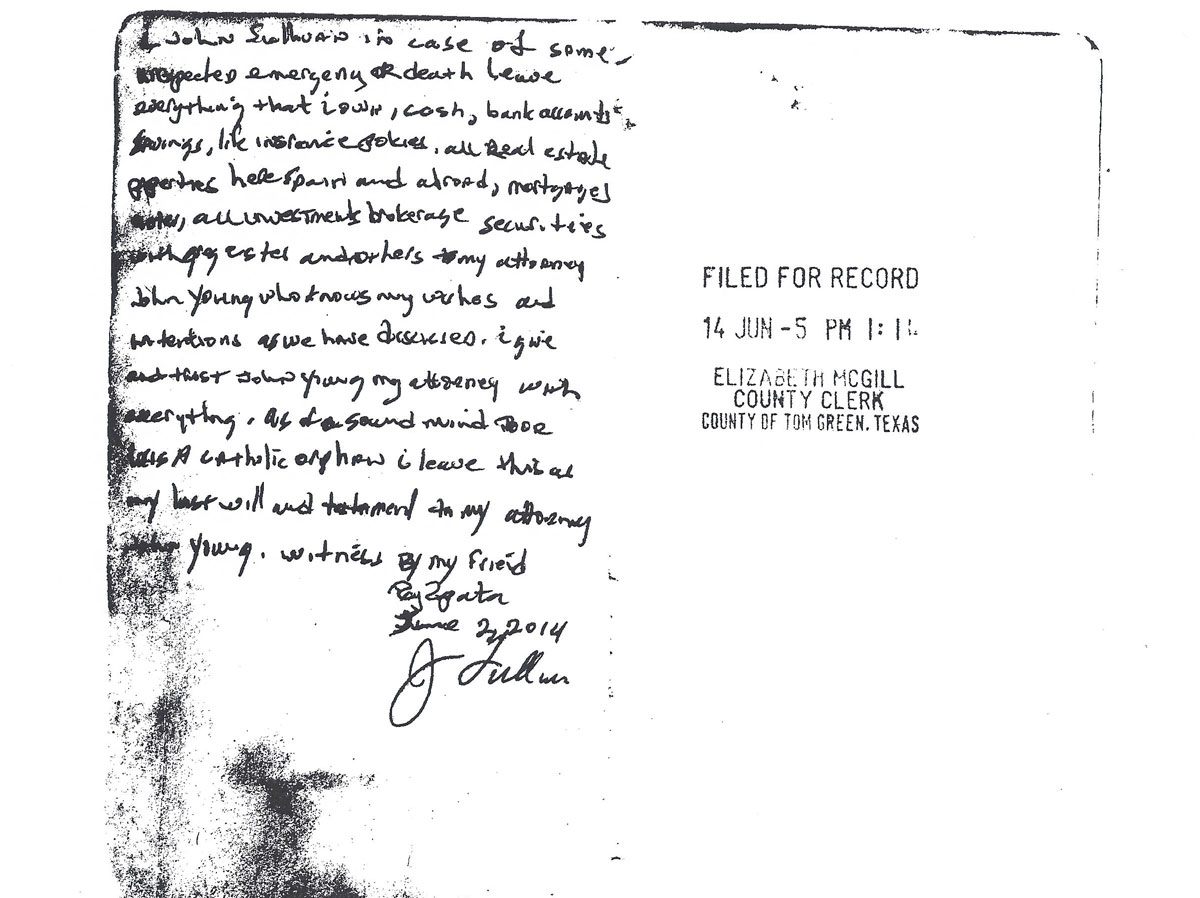 I John Sullivan in case of some
unexpected emergency OR death leave
everything that i own, cash, bank accounts
savings, life insrance polcies, all Real estate
properties here Spain and abroad, mortgages
notes, all investments brokerage securities
and others to my attorney
John Young who knows my wishes and
intentions as we have discussed. i give
and trust John Young my attorney with
everything. As of a sound mind
A catholic orphan i leave this as
my last will and testament to my attorney
John Young. witness By my friend
Ray Zapata
June 2, 2014
J Sullivan
FILED FOR RECORD
14 JUN -5 PM 1:
ELIZABETH MCGILL
COUNTY CLERK
COUNTY OF TOM GREEN, TEXAS